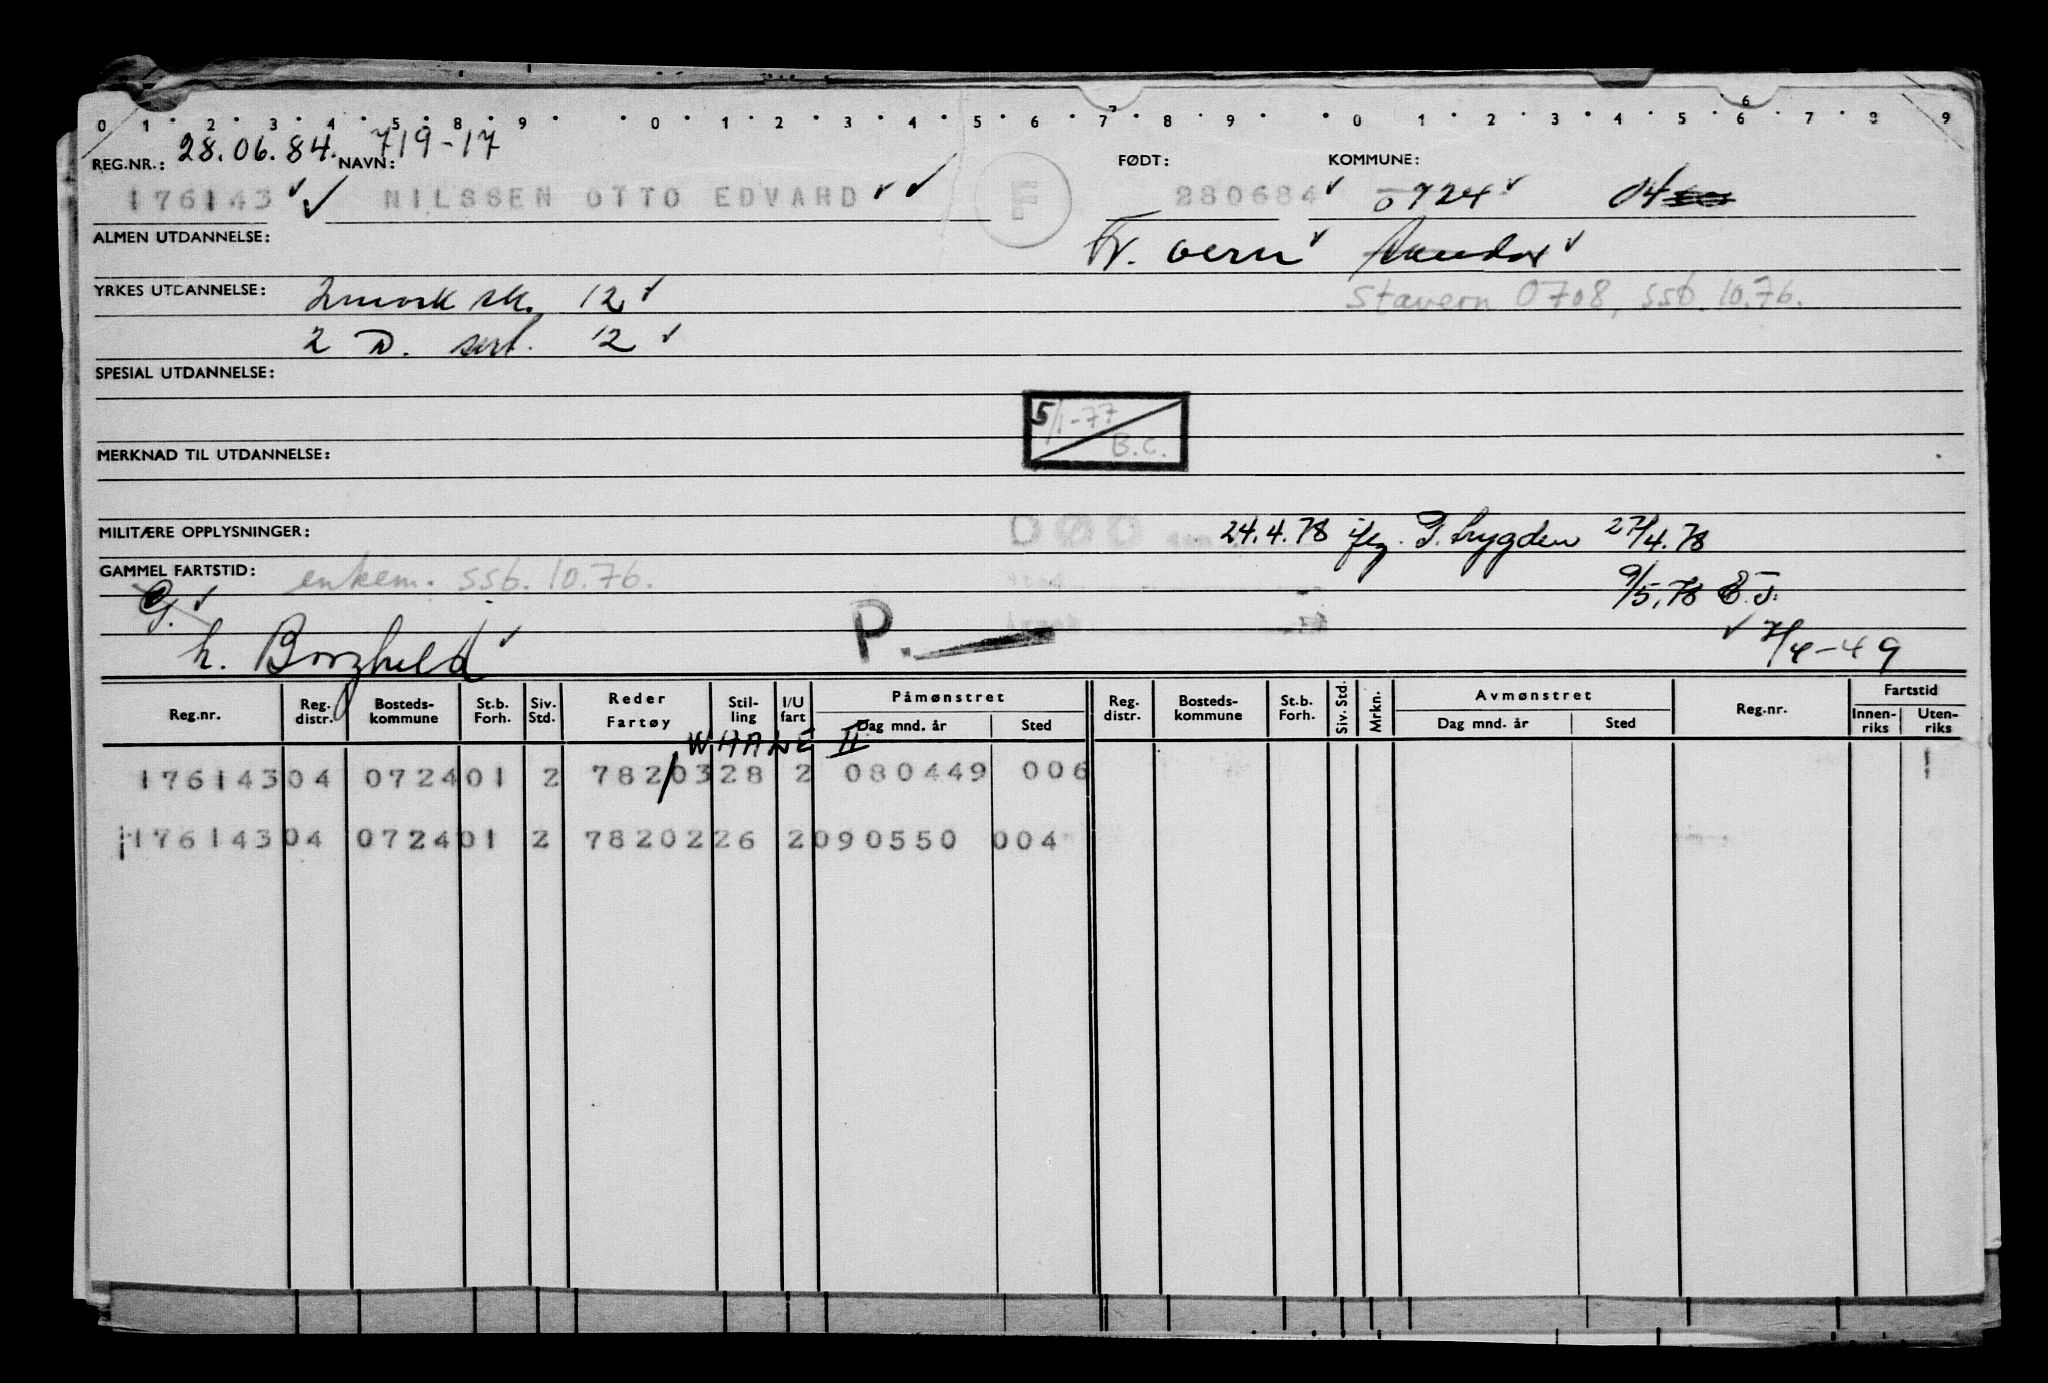 0 1 2 3 4 5 8 9 0 1 2 3 4 5 6 7 8 9 0 1 2 3 4 5 6 7 8 9
28.06.84. 719-17
REG.NR.: NAVN: FØDT: KOMMUNE:
176143 NILSSEN OTTO EDVARD F 280684 0724 04
ALMEN UTDANNELSE: Fr. vern
YRKES UTDANNELSE: sk. 12 Stavern 0708, ssb. 10.76.
2 D. sert. 12
SPESIAL UTDANNELSE:
5/1-77
B.C.
MERKNAD TIL UTDANNELSE:
MILITÆRE OPPLYSNINGER: DØD 24.4.78 iflg. P. trygden 27/4.78
GAMMEL FARTSTID: enkem. ssb. 10.76.
G. 9/5.78 E.J.
h. Borghild P. 7/4-49
Reg.nr. Reg. distr. Bosteds- kommune St.b. Forh. Siv. Std. Reder Fartøy Stil- ling I/U fart Påmønstret Dag mnd. år Sted Reg. distr. Bosteds- kommune St.b. Forh. Siv. Std. Mrkn. Avmønstret Dag mnd. år Sted Reg.nr. Fartstid Innen- riks Uten- riks
WHALE II
176143 04 0724 01 2 782/03 28 2 080449 006 1
176143 04 0724 01 2 78202 26 2 090550 004